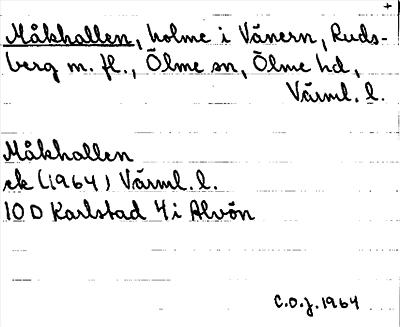 +
Måkhallen, holme i Vänern, Ruds-
berg m. fl., Ölme sn, Ölme hd,
Värml. l.
Måkhallen
ek (1964) Värml. l.
10 D Karlstad 4 i Alvön
C.O.J. 1964